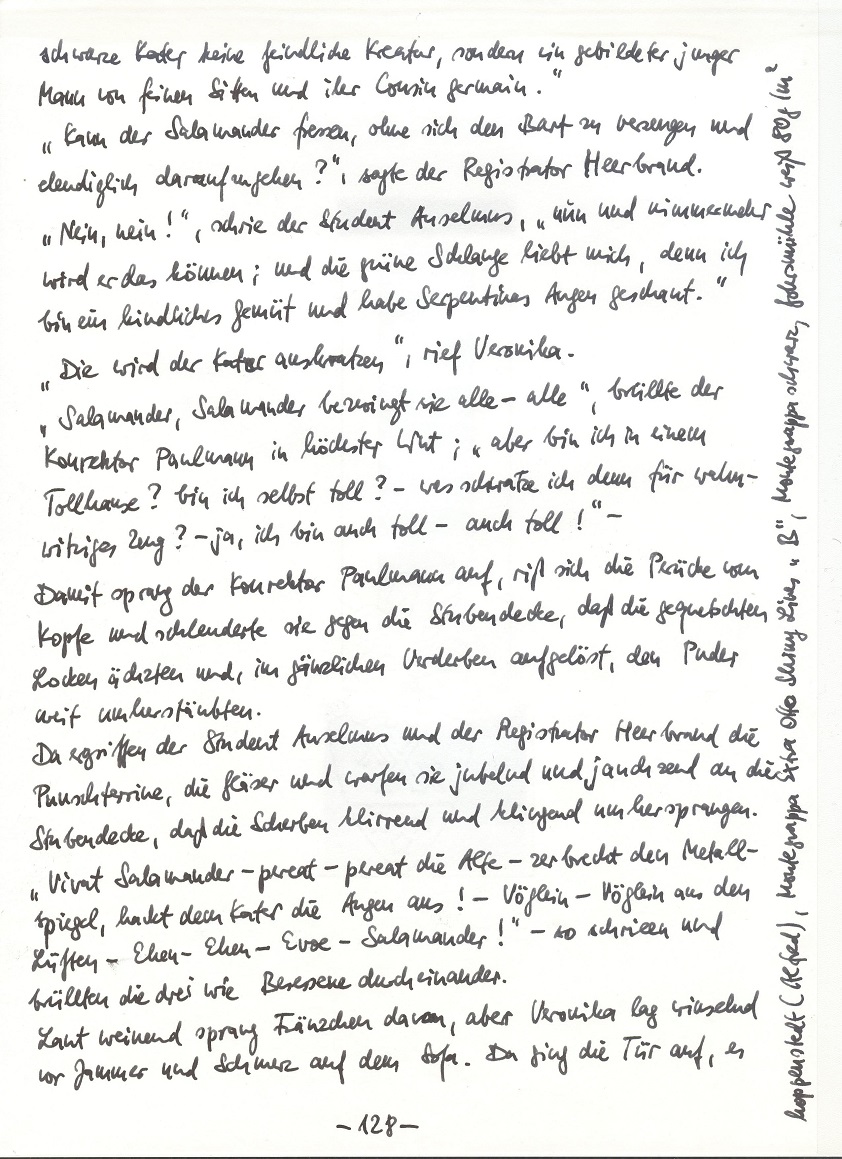 schwarze Kater keine feindliche Kreatur, sondern ein gebildeter junger
Mann von feinen Sitten und ihr Cousin germain."
„Kann der Salamander fressen, ohne sich den Bart zu versengen und
elendiglich daraufzugehen?", sagte der Registrator Heerbrand.
„Nein, nein!", schrie der Student Anselmus, „nun und nimmermehr
wird er das können; und die grüne Schlange liebt mich, denn ich
bin ein kindliches Gemüt und habe Serpentinas Augen geschaut."
„Die wird der Kater auskratzen", rief Veronika.
„Salamander, Salamander bezwingt sie alle – alle", brüllte der
Konrektor Paulmann in höchster Wut; „aber bin ich in einem
Tollhause? bin ich selbst toll? – was schwatze ich denn für wahn-
witziges Zeug? – ja, ich bin auch toll – auch toll!" –
Damit sprang der Konrektor Paulmann auf, riß sich die Perücke vom
Kopfe und schleuderte sie gegen die Stubendecke, daß die gequetschten
Locken ächzten und, im gänzlichen Verderben aufgelöst, den Puder
weit umherstäubten.
Da ergriffen der Student Anselmus und der Registrator Heerbrand die
Punschterrine, die Gläser und warfen sie jubelnd und jauchzend an die
Stubendecke, daß die Scherben klirrend und klingend umhersprangen.
„Vivat Salamander – pereat – pereat die Alte – zerbrecht den Metall-
spiegel, hackt dem Kater die Augen aus! – Vöglein – Vöglein aus den
Lüften – Eheu – Eheu – Evoe – Salamander!" – so schrieen und
brüllten die drei wie Besessene durcheinander.
Laut weinend sprang Fränzchen davon, aber Veronika lag winselnd
vor Jammer und Schmerz auf dem Sofa. Da ging die Tür auf, es
– 128 –
hoppenstedt (Alfred), Montegrappa Extra Otto Shiny Lines „B", Montegrappa schwarz, fohrsmühle weiß 80g/m²